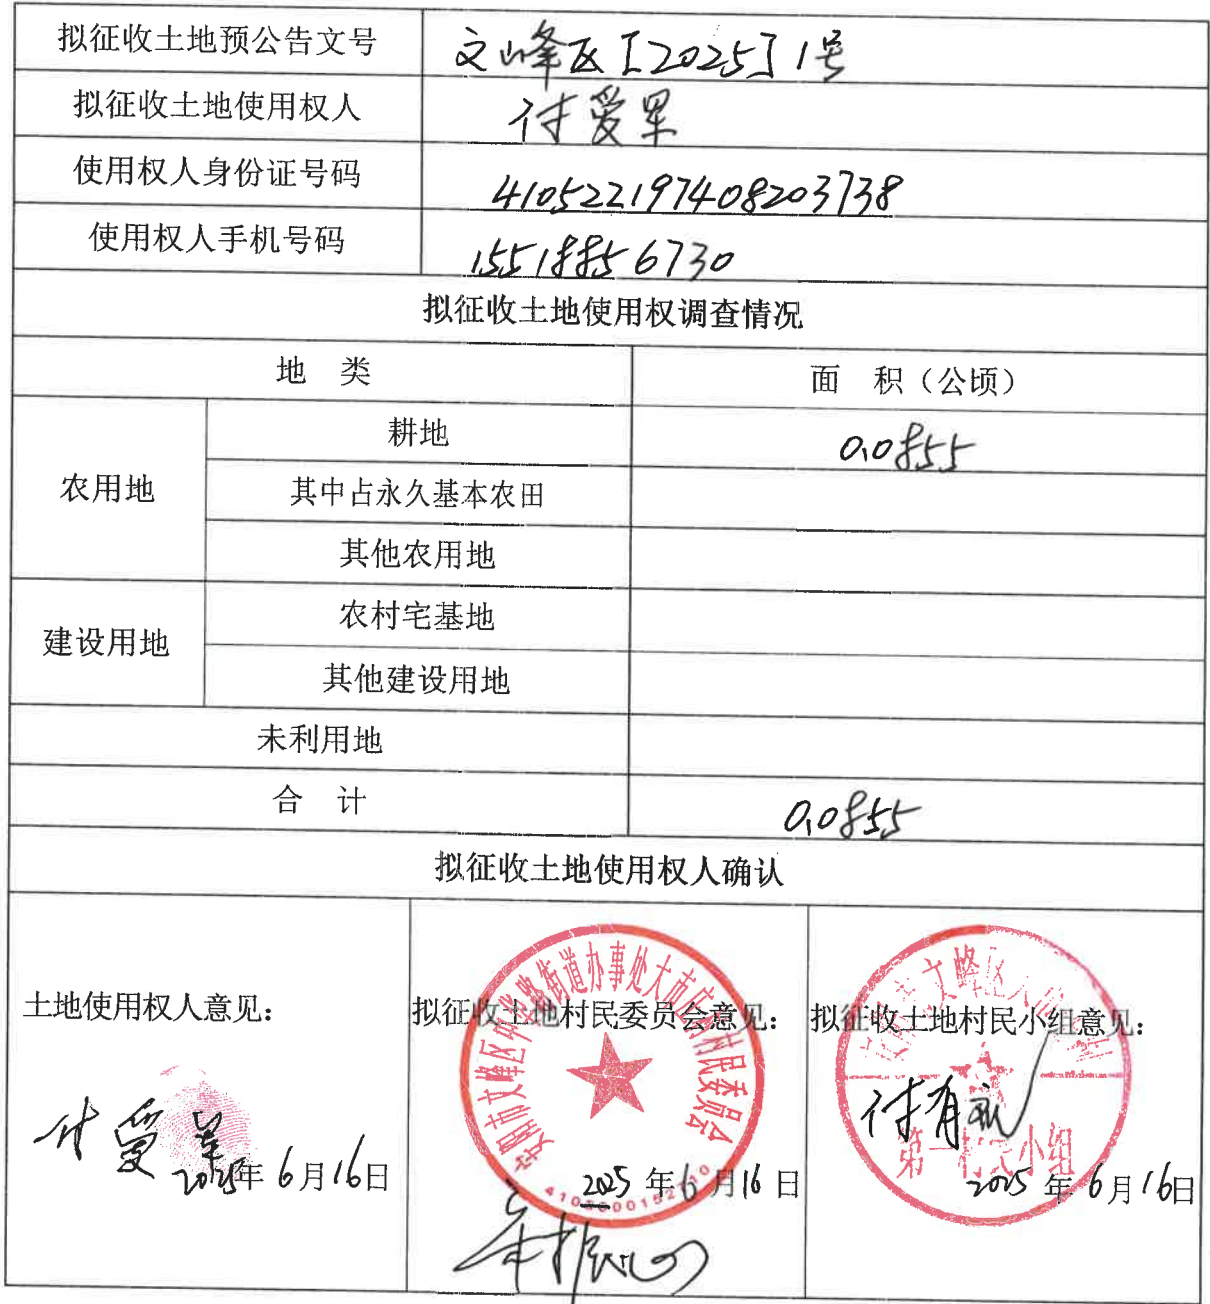 拟征收土地预公告文号 文峰区[2025]1号
拟征收土地使用权人 付爱军
使用权人身份证号码 410522197408203738
使用权人手机号码 15518856730
拟征收土地使用权调查情况
地 类 面 积（公顷）
农用地 耕地 0.0855
其中占永久基本农田
其他农用地
建设用地 农村宅基地
其他建设用地
未利用地
合 计 0.0855
拟征收土地使用权人确认
土地使用权人意见：
付爱军
2025年6月16日
拟征收土地村民委员会意见：
安阳市文峰区中华路街道办事处大市庄村村民委员会
2025年6月16日
拟征收土地村民小组意见：
付有
第一村民小组
2025年6月16日